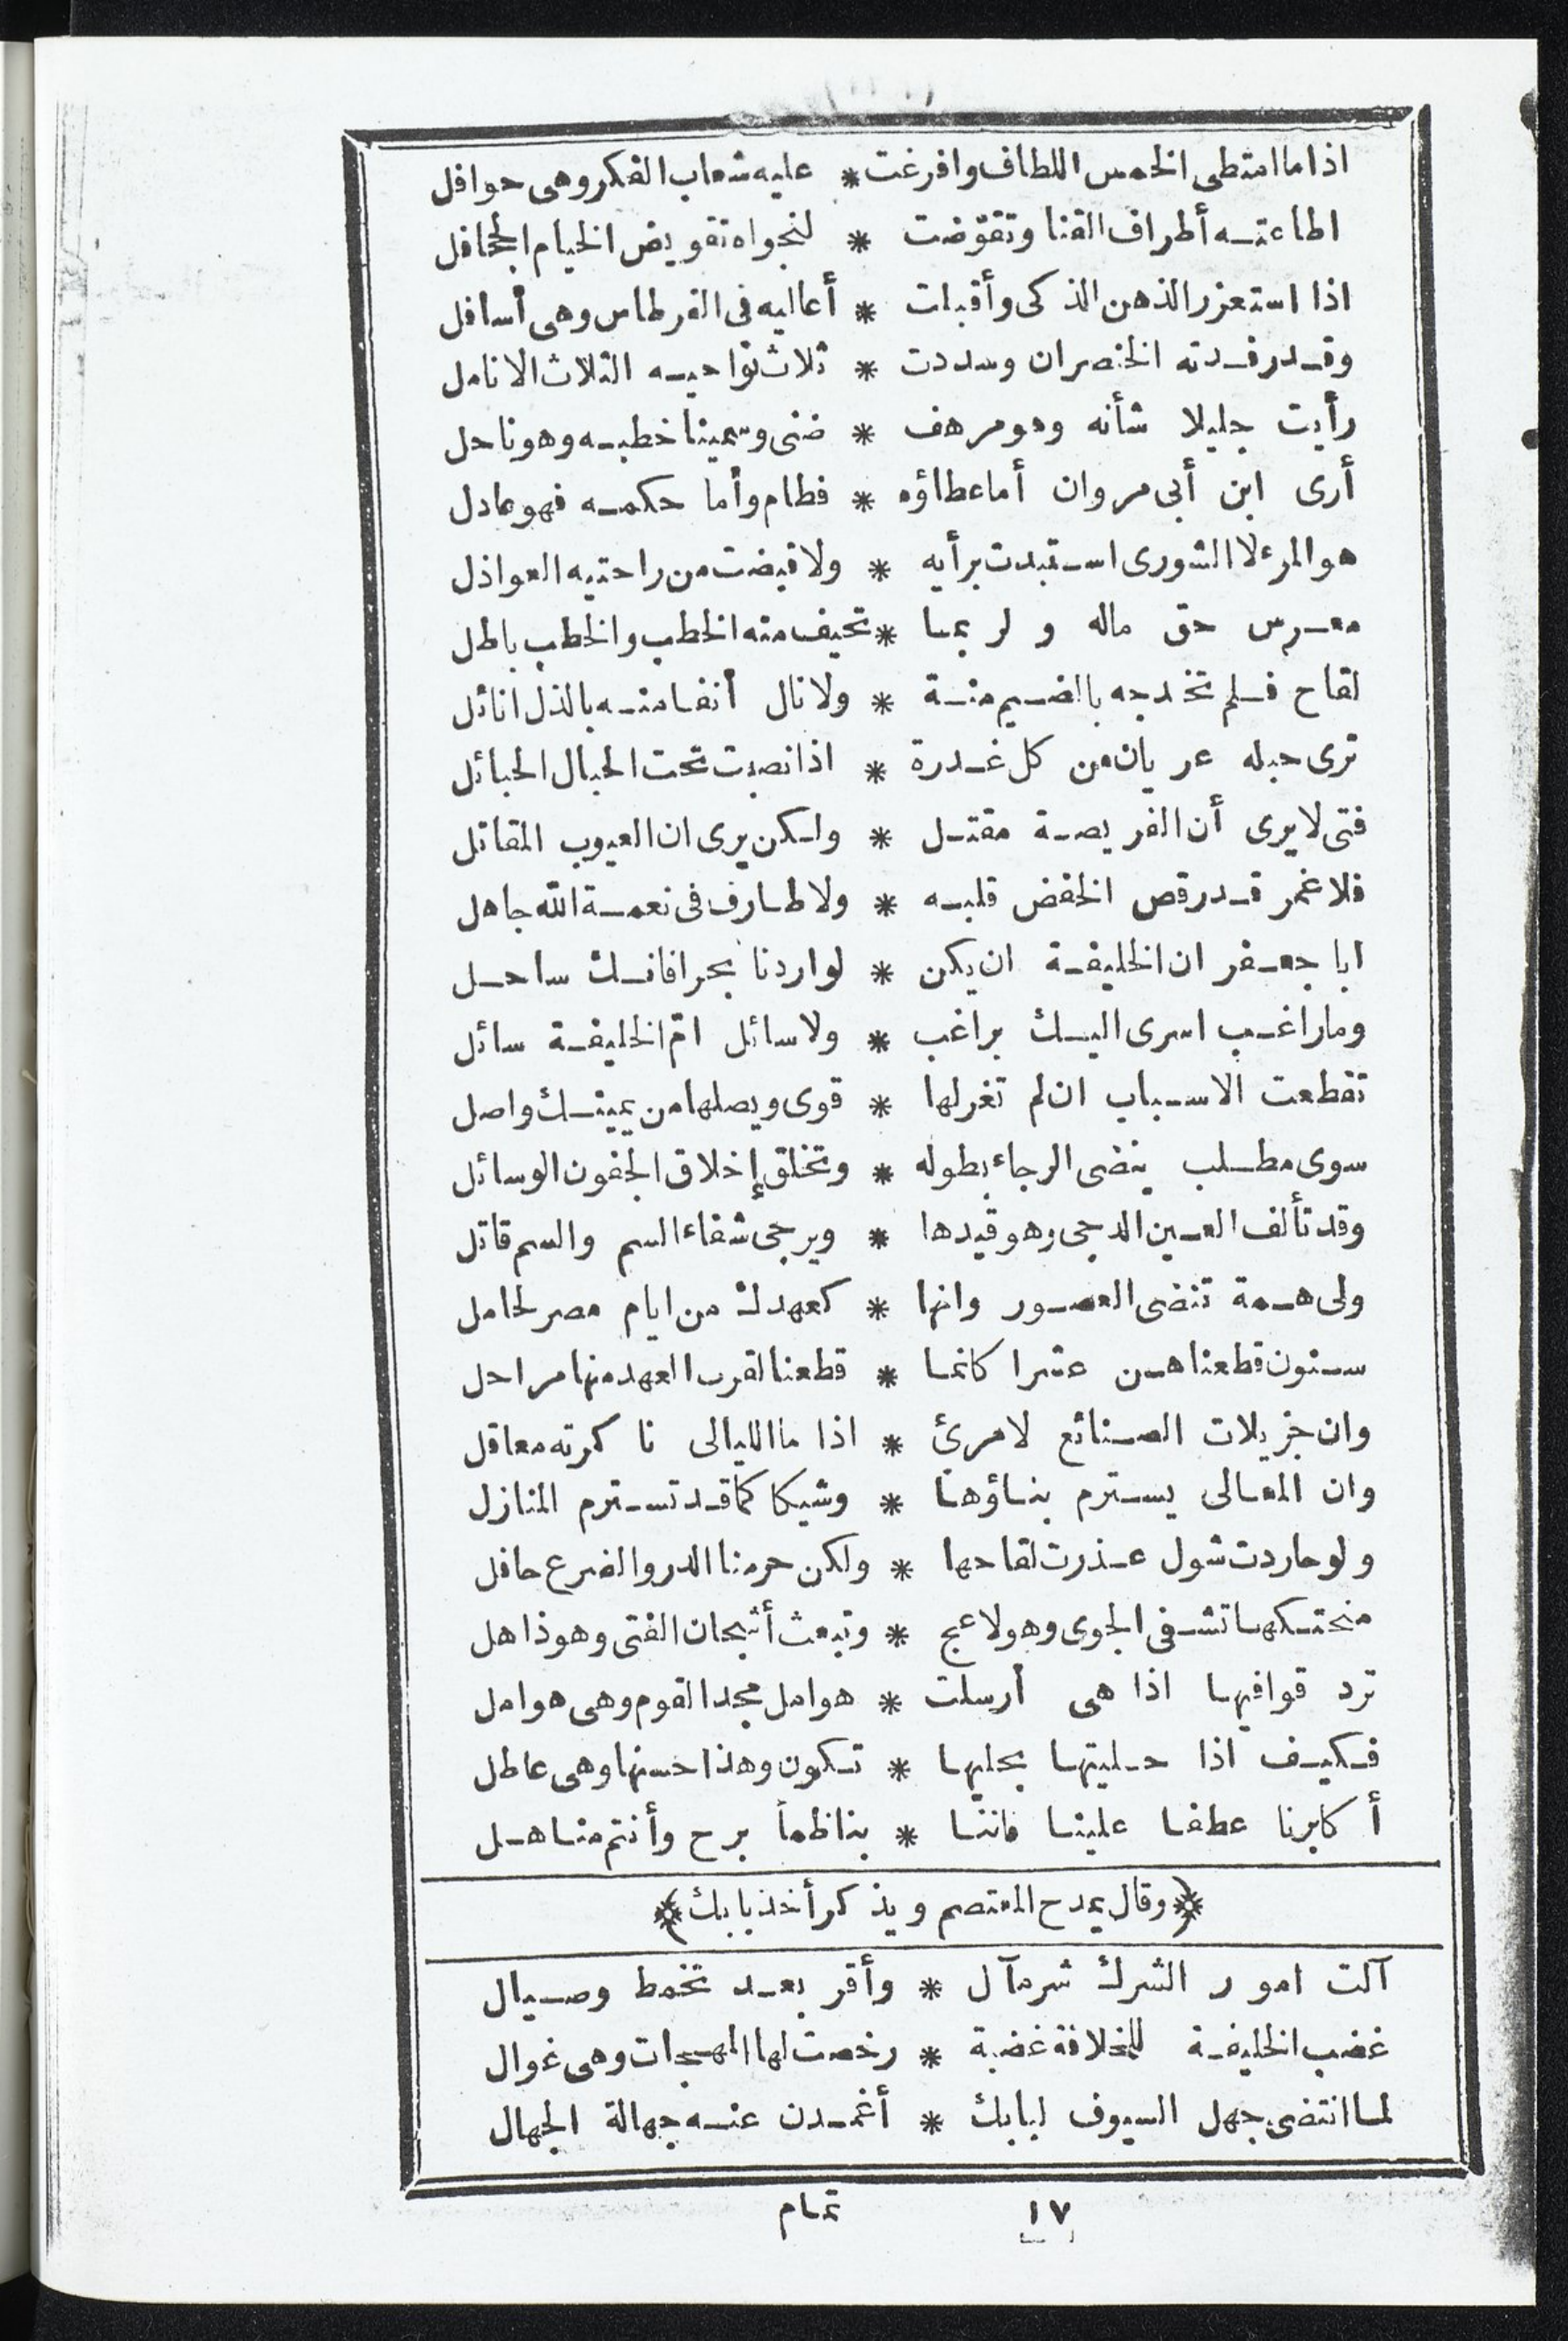 اذا ما امتطى الخمس اللطاف وافرغت * عليه شعاب الفكر وهى حوافل
اطاعته أطراف القنا وتقوّضت * لنجواه تقويض الخيام الجحافل
اذا استعزر الذهن الذكى وأقبلت * أعاليه فى القرطاس وهى أسافل
وقد رفدته الخنصران وسددت * ثلاث نواحيه الثلاث الانامل
رأيت جليلا شأنه وهو مرهف * ضنى وسمينا خطبه وهو ناحل
أرى ابن أبى مروان أما عطاؤه * فطام وأما حكمه فهو عادل
هو المرء لا الشورى استبدت برأيه * ولا قبضت من راحتيه العواذل
معرس حق ماله ولربما * تحيف منه الخطب والخطب باطل
لقاح فلم تخدجه بالضيم منة * ولا نال أنفا منه بالذل انائل
ترى حبله عريان من كل غدرة * اذا نصبت تحت الحبال الحبائل
فتى لا يرى أن الفريصة مقتل * ولكن يرى ان العيوب المقاتل
فلا غمر قد رقص الخفض قلبه * ولا طارف فى نعمة الله جاهل
ابا جعفر ان الخليفة ان يكن * لواردنا بحرا فانك ساحل
وما راغب اسرى اليك براغب * ولا سائل امّ الخليفة سائل
تقطعت الاسباب ان لم تغر لها * قوى ويصلها من يمينك واصل
سوى مطلب ينضى الرجاء بطوله * وتخلق إخلاق الجفون الوسائل
وقد تألف العين الدجى وهو قيدها * ويرجى شفاء السم والسم قاتل
ولى همة تنضى العصور وانها * كعهدك من ايام مصر لحامل
سنون قطعناهن عشرا كانما * قطعنا لقرب العهد منها مراحل
وان جزيلات الصنائع لامرئ * اذا ما الليالى ناكرته معاقل
وان المعالى يسترم بناؤها * وشيكا كما قد تسترم المنازل
ولو حاردت شول عذرت لقاحها * ولكن حرمنا الدر والضرع حافل
منحتكها تشفى الجوى وهو لاعج * وتبعث أشجان الفتى وهو ذاهل
ترد قوافيها اذا هى أرسلت * هوامل مجد القوم وهى هوامل
فكيف اذا حليتها بحليها * تكون وهذا حسنها وهى عاطل
أكابرنا عطفا علينا فاننا * بنا ظمأ برح وأنتم مناهل
﴿وقال يمدح المعتصم ويذكر أخذ بابك﴾
آلت امور الشرك شر مآل * وأقر بعد تخمط وصيال
غضب الخليفة للخلافة غضبة * رخصت لها المهجات وهى غوال
لما انتضى جهل السيوف لبابك * أغمدن عنه جهالة الجهال
١٧ تمام